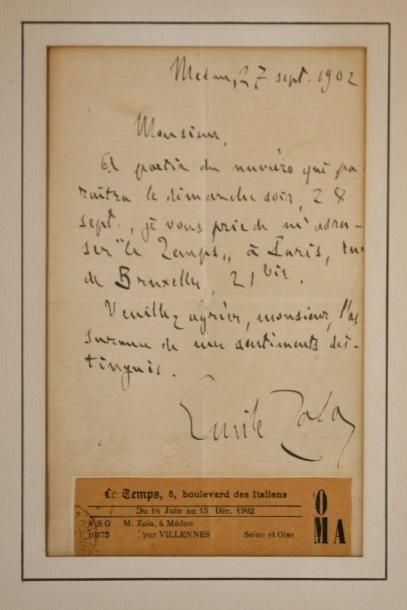 Médan, 27 sept. 1902
Monsieur,
A partir du numéro qui pa-
raîtra le dimanche soir, 28
sept., je vous prie de m'adres-
ser "le Temps„ à Paris, rue
de Bruxelles, 21 bis.
Veuillez agréer, monsieur, l'as
surance de mes sentiments dis-
tingués.
Emile Zola
Le Temps, 5, boulevard des Italiens
Du 16 Juin au 15 Déc. 1902
SO M. Zola, à Médan
par VILLENNES Seine et Oise
O
M A